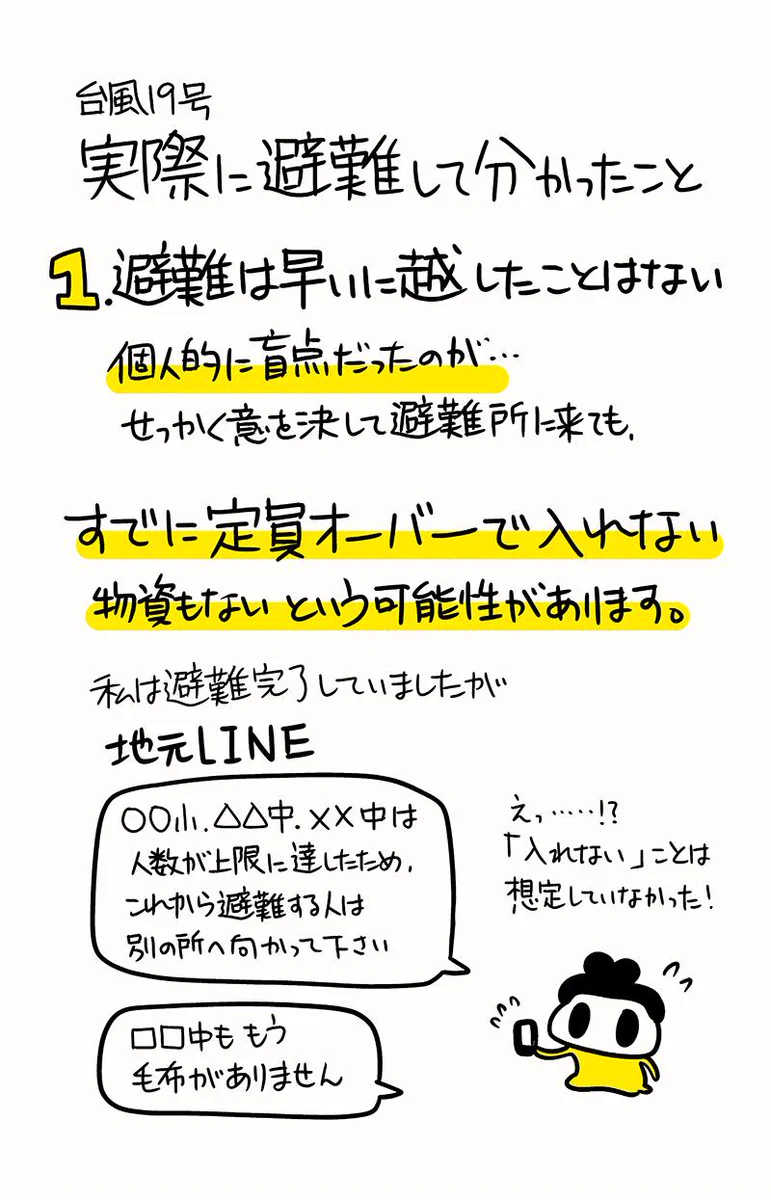 台風19号
実際に避難して分かったこと
1.避難は早いに越したことはない
個人的に盲点だったのが…
せっかく意を決して避難所に来ても、
すでに定員オーバーで入れない
物資もないという可能性があります。
私は避難完了していましたが
地元LINE
○○小、△△中、××中は
人数が上限に達したため、
これから避難する人は
別の所へ向かって下さい
えっ……!?
「入れない」ことは
想定していなかった!
□□中も もう
毛布がありません